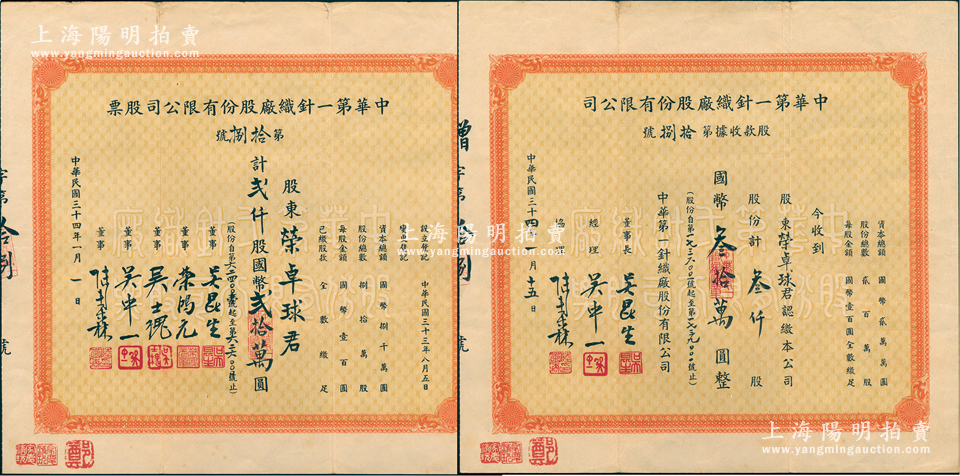 上海陽明拍賣
www.yangmingauction.com
中華第一針織廠股份有限公司股票
第拾捌號
設立登記 中華民國三十三年八月五日
變更登記
資本總額 國幣捌千萬圓
股份總數 捌拾萬股
每股金額 國幣壹百圓
已繳股款 全數繳足
股東榮卓球君
計貳仟股國幣貳拾萬圓
董事 吳昆生
董事 榮鴻元
董事 吳士槐
董事 吳中一
董事
中華民國三十四年一月一日
字第拾捌號
中華第一針織廠股份有限公司
股款收據第拾捌號
資本總額 國幣貳萬萬圓
股份總數 貳百萬股
每股金額 國幣壹百圓全數繳足
今收到
股東榮卓球君認繳本公司
股份計叁仟股
國幣叁拾萬圓整
中華第一針織廠股份有限公司
董事長 吳昆生
經理 吳中一
協理
中華民國三十四年一月十五日
增字第拾捌號
上海陽明拍賣
www.yangmingauction.com